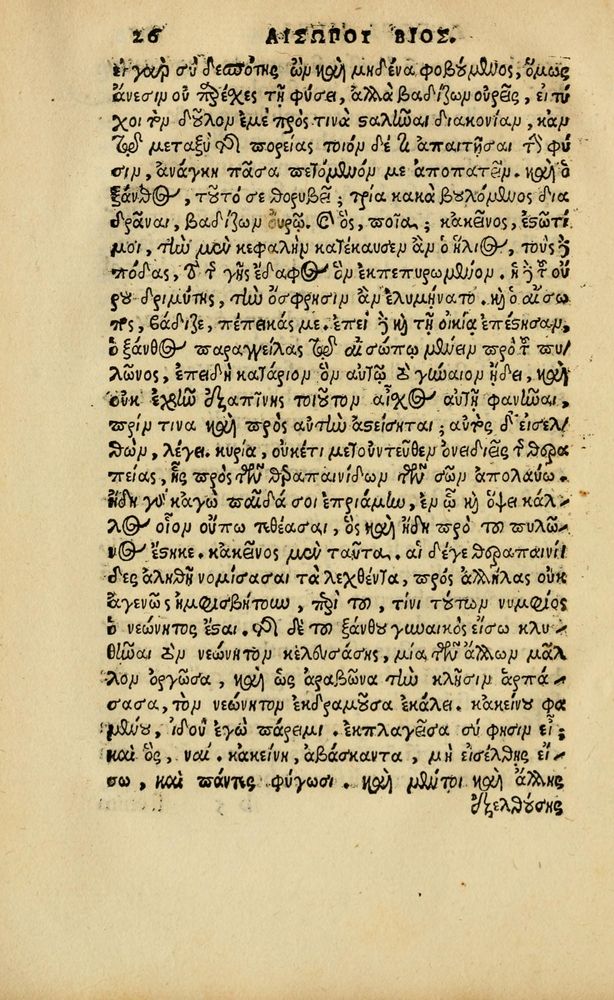 26 ΑΙΣΩΠΟΥ ΒΙΟΣ.
εἰ γὰρ σὺ δεσπότης ὢν καὶ μηδένα φοβούμενος, ὅμως
ἄνεσιν οὐ παρέχεις τῇ φύσει, ἀλλὰ βαδίζων οὐρεῖς, εἰ τύ-
χοι τὸν δοῦλον ἐμὲ πρός τινα σταλῆναι διακονίαν, κἂν
τῷ μεταξὺ τῆς πορείας ποιόν δέ τι ἀπαιτῆσαι τὴν φύ
σιν, ἀνάγκη πᾶσα πετόμενόν με ἀποπατεῖν. καὶ ὁ
ξάνθος, τοῦτό σε θορυβεῖ; τρία κακὰ βουλόμενος δια
δρᾶναι, βαδίζων οὐρῶ. ὁ δὲ, ποῖα; κἀκεῖνος, ἑστῶτί
μοι, τὴν μὲν κεφαλὴν κατέκαυσεν ἂν ὁ ἥλιος, τοὺς δὲ
πόδας, τὸ τῆς γῆς ἔδαφος ὂν ἐκπεπυρωμένον. ἡ δὲ τοῦ οὔ
ρου δριμύτης, τὴν ὄσφρησιν ἂν ἐλυμήνατο. καὶ ὁ αἴσω
πος, βάδιζε, πέπεικάς με. ἐπεὶ δὲ καὶ τῇ οἰκίᾳ ἐπέστησαν,
ὁ ξάνθος παραγγείλας τῷ αἰσώπῳ μένειν πρὸ τοῦ πυ-
λῶνος, ἐπειδὴ κατάριον ὂν αὐτῷ τὸ γύναιον ᾔδει, καὶ
οὐκ ἐχρῆν ἐξαπίνης τοιοῦτον αἶσχος αὐτῇ φανῆναι,
πρίν τινα καὶ πρὸς αὐτὴν ἀστείσηται; αὐτὸς δὲ εἰσελ-
θὼν, λέγει. κυρία, οὐκέτι μετοὐντεῦθεν ὀνειδιεῖς τῆς θερα
πείας, ἧς πρὸς τῶν θεραπαινίδων τῶν σῶν ἀπολαύω.
ἤδη γοῦν κἀγὼ παῖδά σοι ἐπριάμην, ἐν ᾧ καὶ ὄψει κάλ-
λος οἷον οὔπω τεθέασαι, ὃς καὶ ἤδη πρὸ τοῦ πυλῶ-
νος ἕστηκε. κἀκεῖνος μὲν ταῦτα. αἱ δέγε θεραπαινί-
δες ἀληθῆ νομίσασαι τὰ λεχθέντα, πρὸς ἀλλήλας οὐκ
ἀγενῶς ἠμφισβήτουν, περὶ τοῦ, τίνι τούτων νυμφίος
ὁ νεώνητος ἔσται. τῆς δὲ τοῦ ξάνθου γυναικὸς εἴσω κλη
θῆναι τὸν νεώνητον κελευσάσης, μία τῶν ἄλλων μᾶλ-
λον ὀργῶσα, καὶ ὡς ἀραβῶνα τὴν κλῆσιν ἁρπά-
σασα, τὸν νεώνητον ἐκδραμοῦσα ἐκάλει. κἀκείνου φα
μένου, ἰδοὺ ἐγὼ πάρειμι. ἐκπλαγεῖσα σύ φησιν εἶ;
καὶ ὃς, ναί. κἀκείνη, ἀβάσκαντα, μὴ εἰσέλθῃς εἴ-
σω, καὶ πάντες φύγωσι. καὶ μέντοι καὶ ἄλλης
ἐξελθούσης